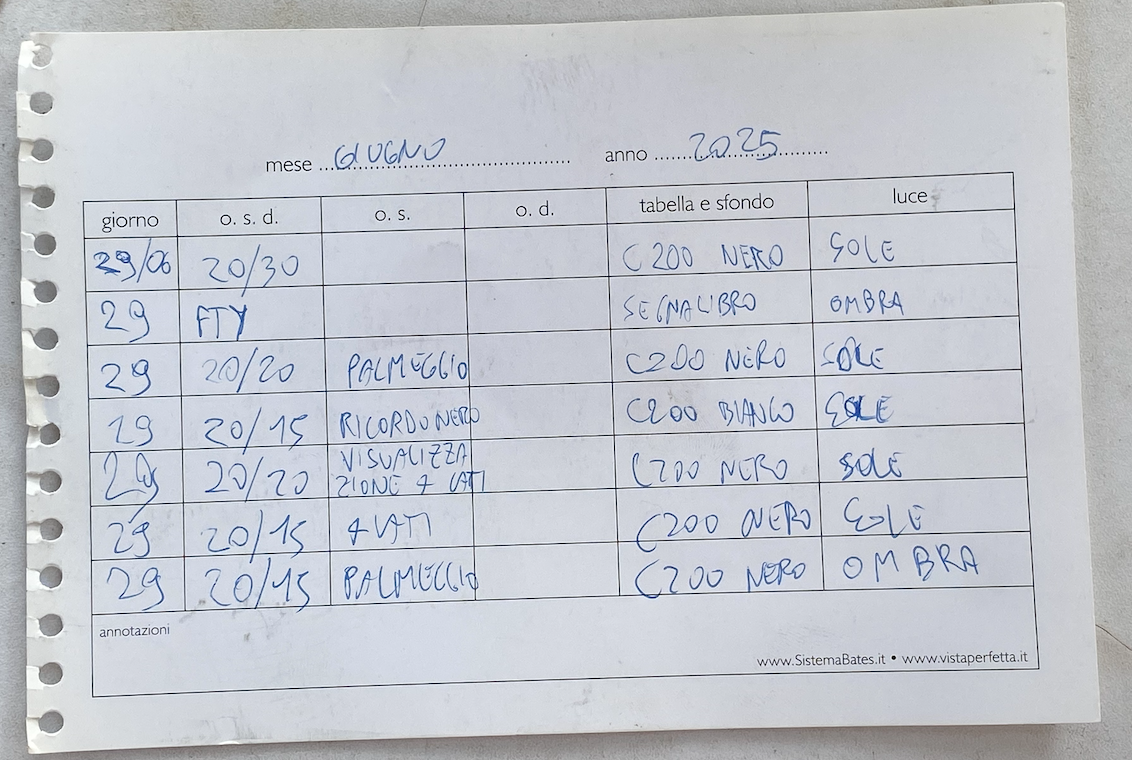 mese GIUGNO anno 2025
giorno o. s. d. o. s. o. d. tabella e sfondo luce
29/06 20/30 C200 NERO SOLE
29 FTY SEGNALIBRO OMBRA
29 20/20 PALMEGGIO C200 NERO SOLE
29 20/15 RICORDO NERO C200 BIANCO SOLE
29 20/20 VISUALIZZA
ZIONE 4 LATI C200 NERO SOLE
29 20/15 4 LATI C200 NERO SOLE
29 20/15 PALMEGGIO C200 NERO OMBRA
annotazioni
www.SistemaBates.it • www.vistaperfetta.it